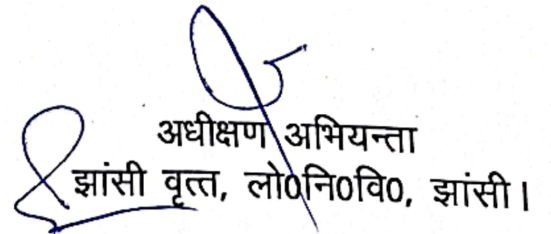 अधीक्षण अभियन्ता
झांसी वृत्त, लो0नि0वि0, झांसी।